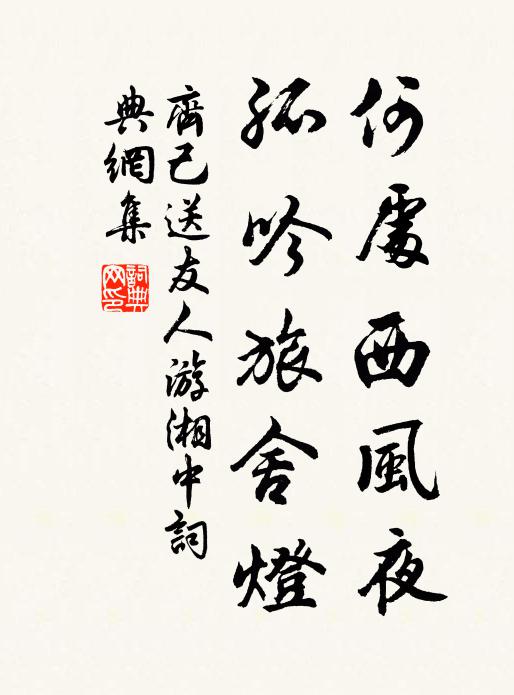 何處西風夜
孤吟旅舍燈
齊己送友人游湘中詞
典網集
詞典
网印